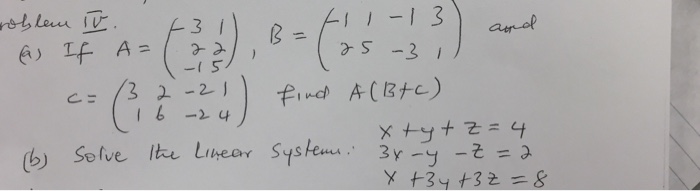 roblem IV.
(a) If A = (-3 1 2 2 -1 5), B = (-1 1 -1 3 2 5 -3 1) and
C = (3 2 -2 1 1 6 -2 4) find A(B+C)
(b) Solve the Linear System: x + y + z = 4
3x - y - z = 2
x + 3y + 3z = 8